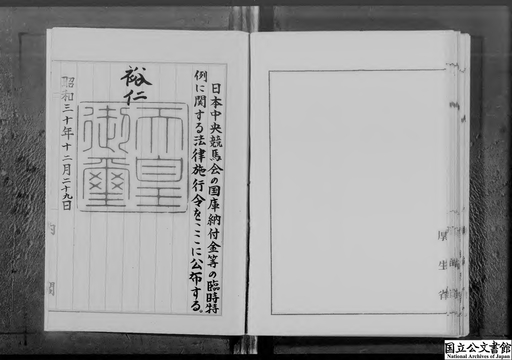 日本中央競馬会の国庫納付金等の臨時特
例に関する法律施行令をここに公布する。
裕仁
天皇
御璽
昭和三十年十二月二十九日
厚生省
国立公文書館
National Archives of Japan